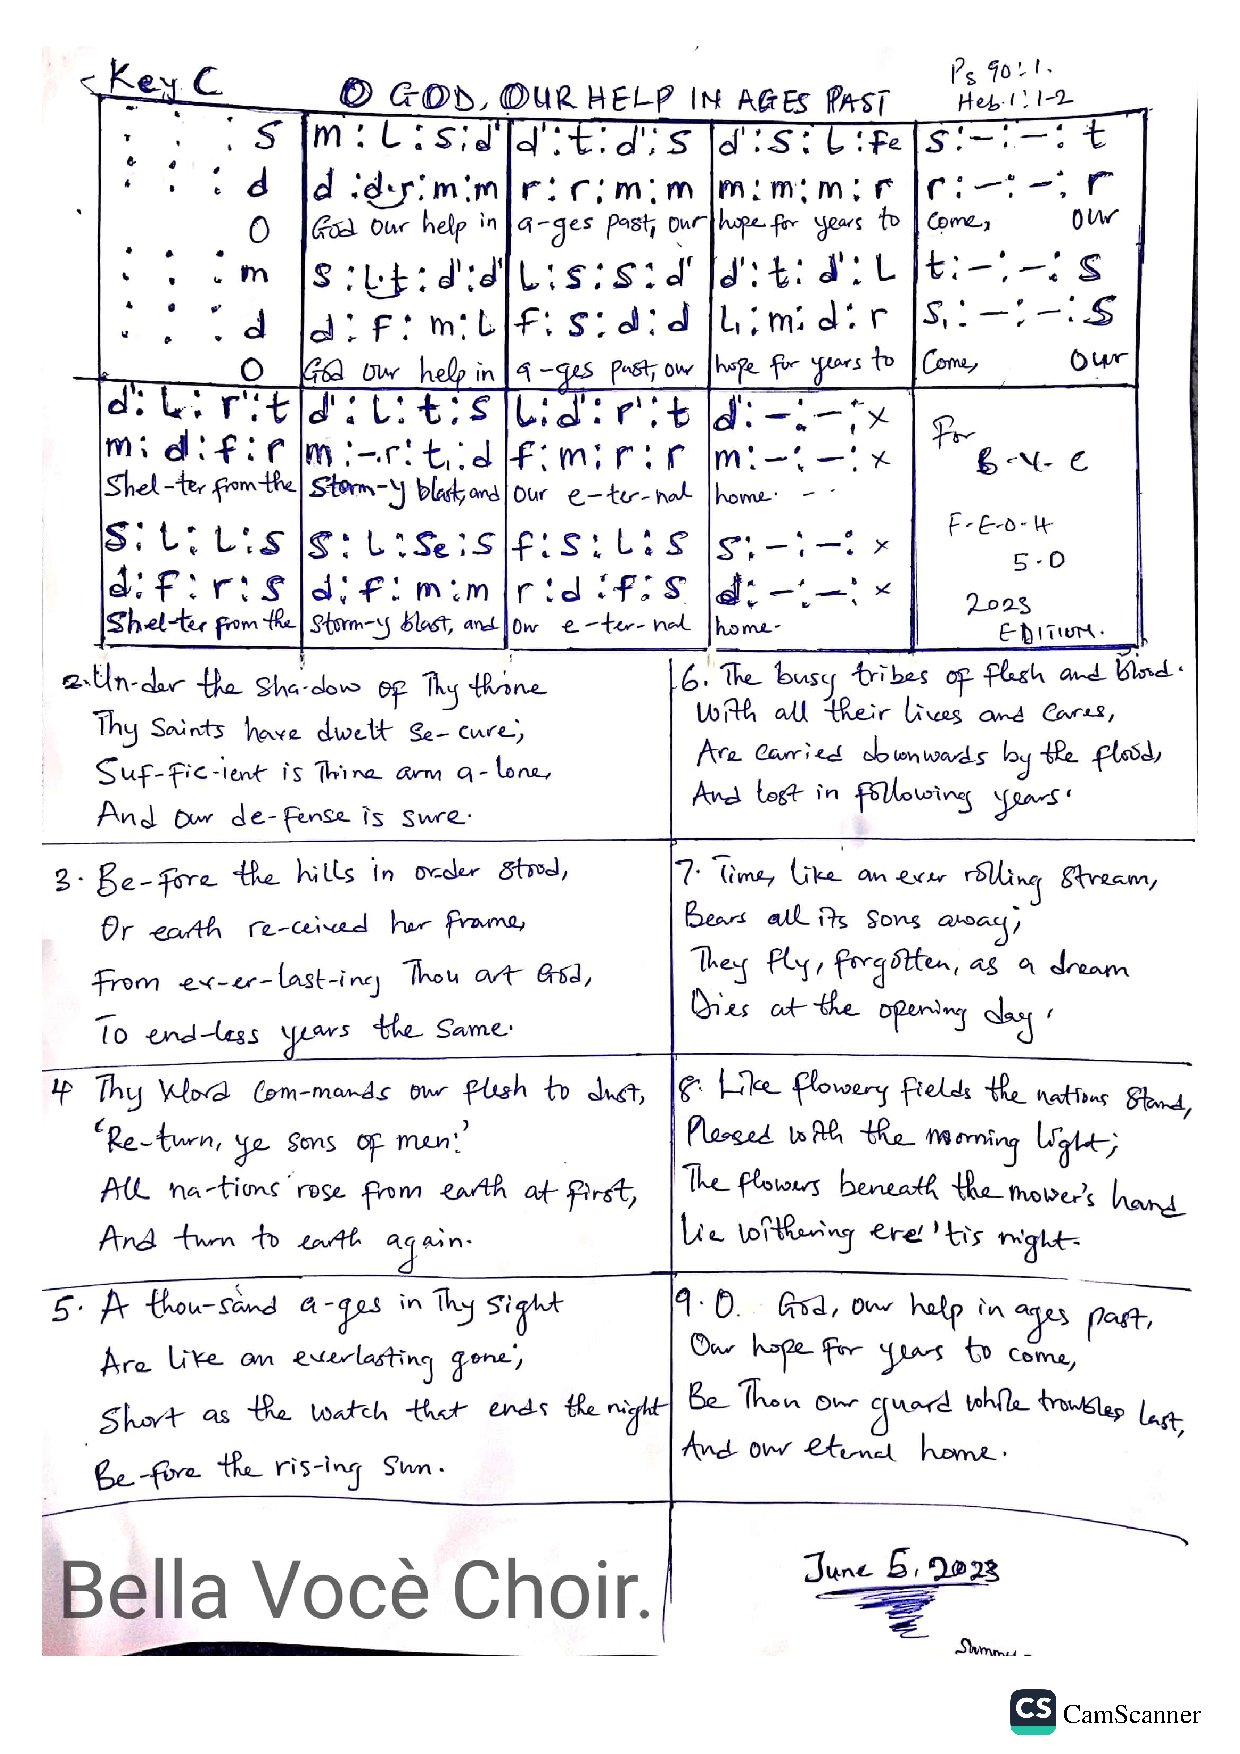 Key C
O GOD, OUR HELP IN AGES PAST
Ps 90:1.
Heb.1:1-2
. . . : s | m : l : s : d' | d' : t : d' : s | d' : s : l : fe | s : – : – : t
. : : : d | d : d-r : m : m | r : r : m : m | m : m : m : r | r : – : – : r
O | God our help in | a-ges past, our | hope for years to | come, our
. . . . m | s : l-t : d' : d' | l : s : s : d' | d' : t : d' : l | t : – : – : s
. . . : d | d : f : m : l | f : s : d : d | l₁ : m : d : r | s₁ : – : – : s
O | God our help in | a-ges past, our | hope for years to | Come, our
d' : l : r' : t | d' : l : t : s | l : d' : r' : t | d' : – : – : x
m : d : f : r | m : – . r : t₁ : d | f : m : r : r | m : – : – : x
Shel-ter from the | Storm-y blast, and | Our e-ter-nal | home.
s : l : l : s | s : l : se : s | f : s : l : s | s : – : – : x
d : f : r : s | d : f : m : m | r : d : f : s | d : – : – : x
Shel-ter from the | Storm-y blast, and | our e-ter-nal | home.
For
B-V-C
F-E-O-H
5.0
2023
EDITION.
2. Un-der the sha-dow of Thy throne
Thy Saints have dwelt Se-cure;
Suf-fic-ient is Thine arm a-lone,
And our de-fense is sure.
3. Be-fore the hills in or-der stood,
Or earth re-ceived her frame,
From ev-er-last-ing Thou art God,
To end-less years the same.
4 Thy Word Com-mands our flesh to dust,
'Re-turn, ye sons of men:'
All na-tions rose from earth at first,
And turn to earth again.
5. A thou-sand a-ges in Thy sight
Are like an everlasting gone;
Short as the watch that ends the night
Be-fore the ris-ing Sun.
6. The busy tribes of flesh and blood.
With all their lives and cares,
Are carried downwards by the flood,
And lost in following years.
7. Time, like an ever rolling stream,
Bears all its sons away;
They fly, forgotten, as a dream
Dies at the opening day.
8. Like flowery fields the nations stand,
Pleased with the morning light;
The flowers beneath the mower's hand
Lie withering ere 'tis night.
9. O. God, our help in ages past,
Our hope for years to come,
Be Thou our guard while troubles last,
And our eternal home.
Bella Vocè Choir.
June 5, 2023
CS CamScanner